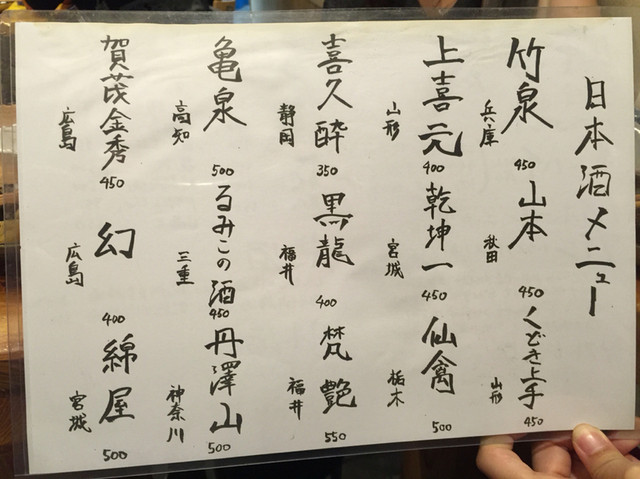 日本酒メニュー
竹泉
兵庫
450
山本
秋田
450
くどき上手
山形
450
上喜元
山形
400
乾坤一
宮城
450
仙禽
栃木
500
喜久酔
静岡
350
黒龍
福井
400
梵 艶
福井
550
亀泉
高知
500
るみこの酒
三重
450
丹澤山
神奈川
500
賀茂金秀
広島
450
幻
広島
400
綿屋
宮城
500